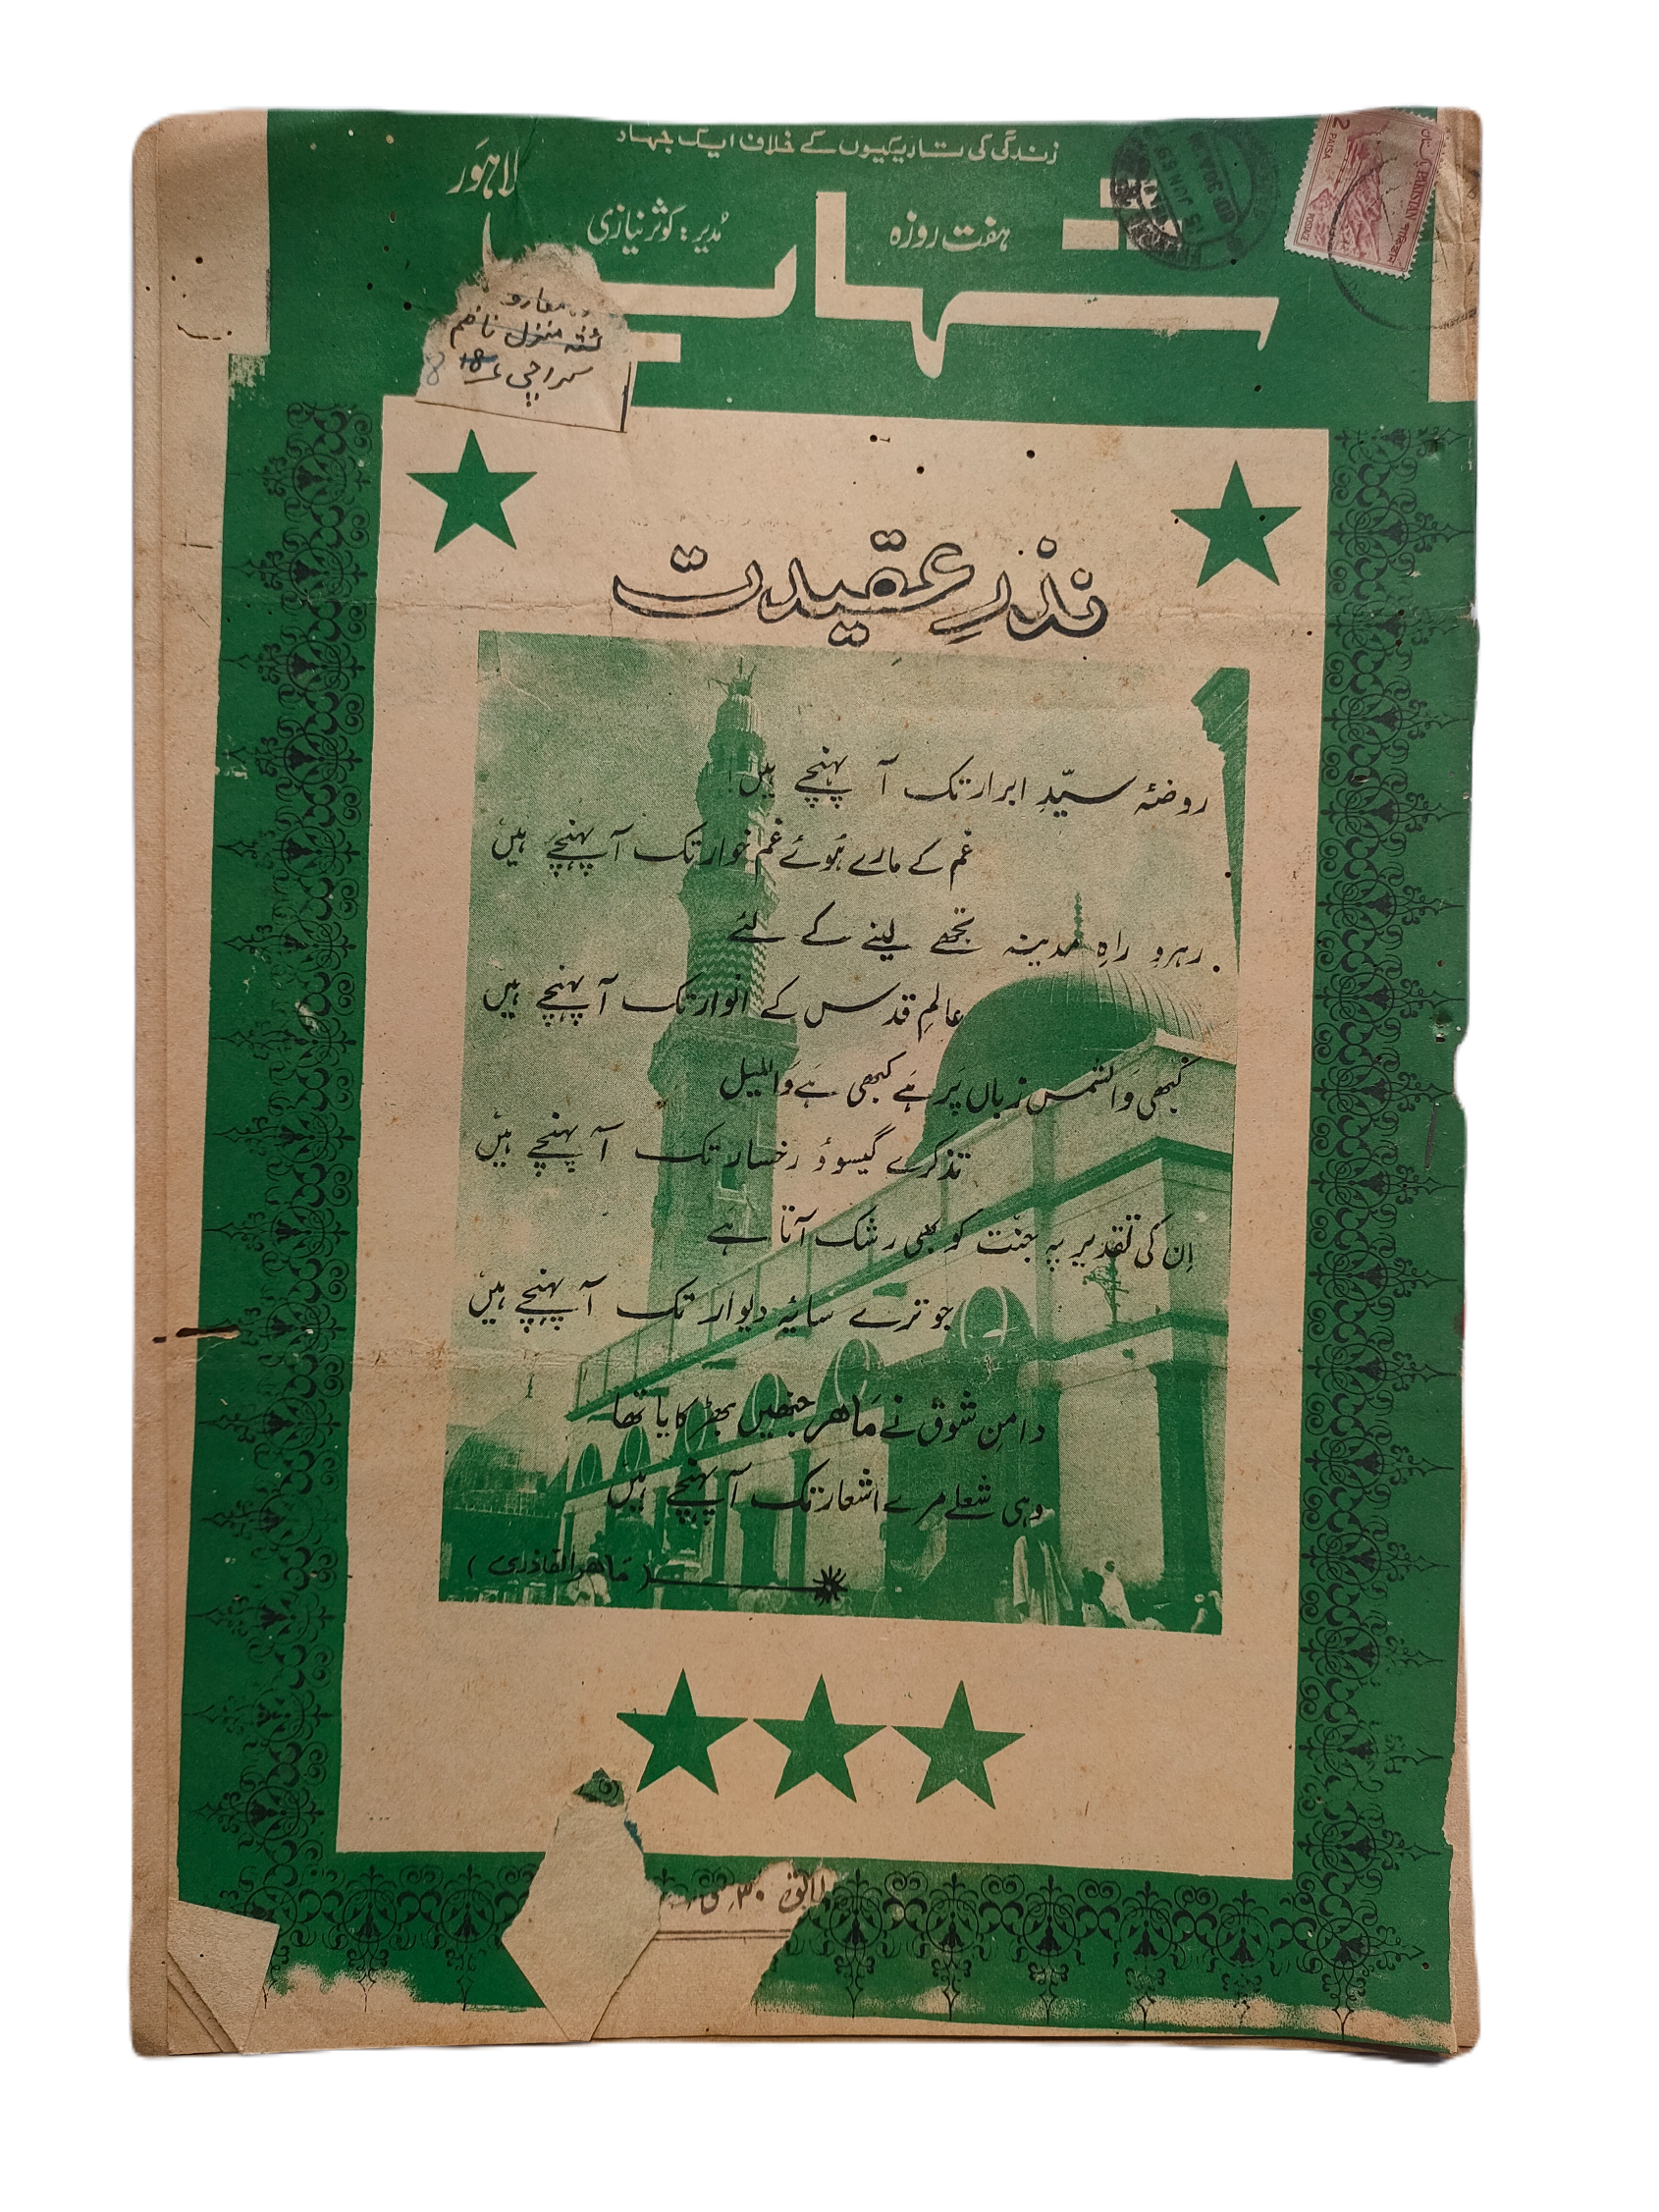 زندگی کی تاریکیوں کے خلاف ایک جہاد
لاہور
ہفت روزہ
مدیر: کوثر نیازی
شہاب
منزل ناظم
کراچی ۱۸
8
2 PAISA
PAKISTAN
POSTAGE
15 JUN 69
نذرِ عقیدت
روضۂ سیّدِ ابرار تک آ پہنچے ہیں
غم کے مارے ہوئے غم خوار تک آ پہنچے ہیں
رہروِ راہِ مدینہ تجھے لینے کے لئے
عالمِ قدس کے انوار تک آ پہنچے ہیں
کبھی والشمس زباں پر ہے کبھی ہے واللیل
تذکرے گیسو و رخسار تک آ پہنچے ہیں
اِن کی تقدیر پہ جنّت کو بھی رشک آتا ہے
جو ترے سایۂ دیوار تک آ پہنچے ہیں
دامنِ شوق نے ماہر جنھیں بھڑکایا تھا
وہی شعلے مرے اشعار تک آ پہنچے ہیں
(ماہر القادری)
۳۰ مئی